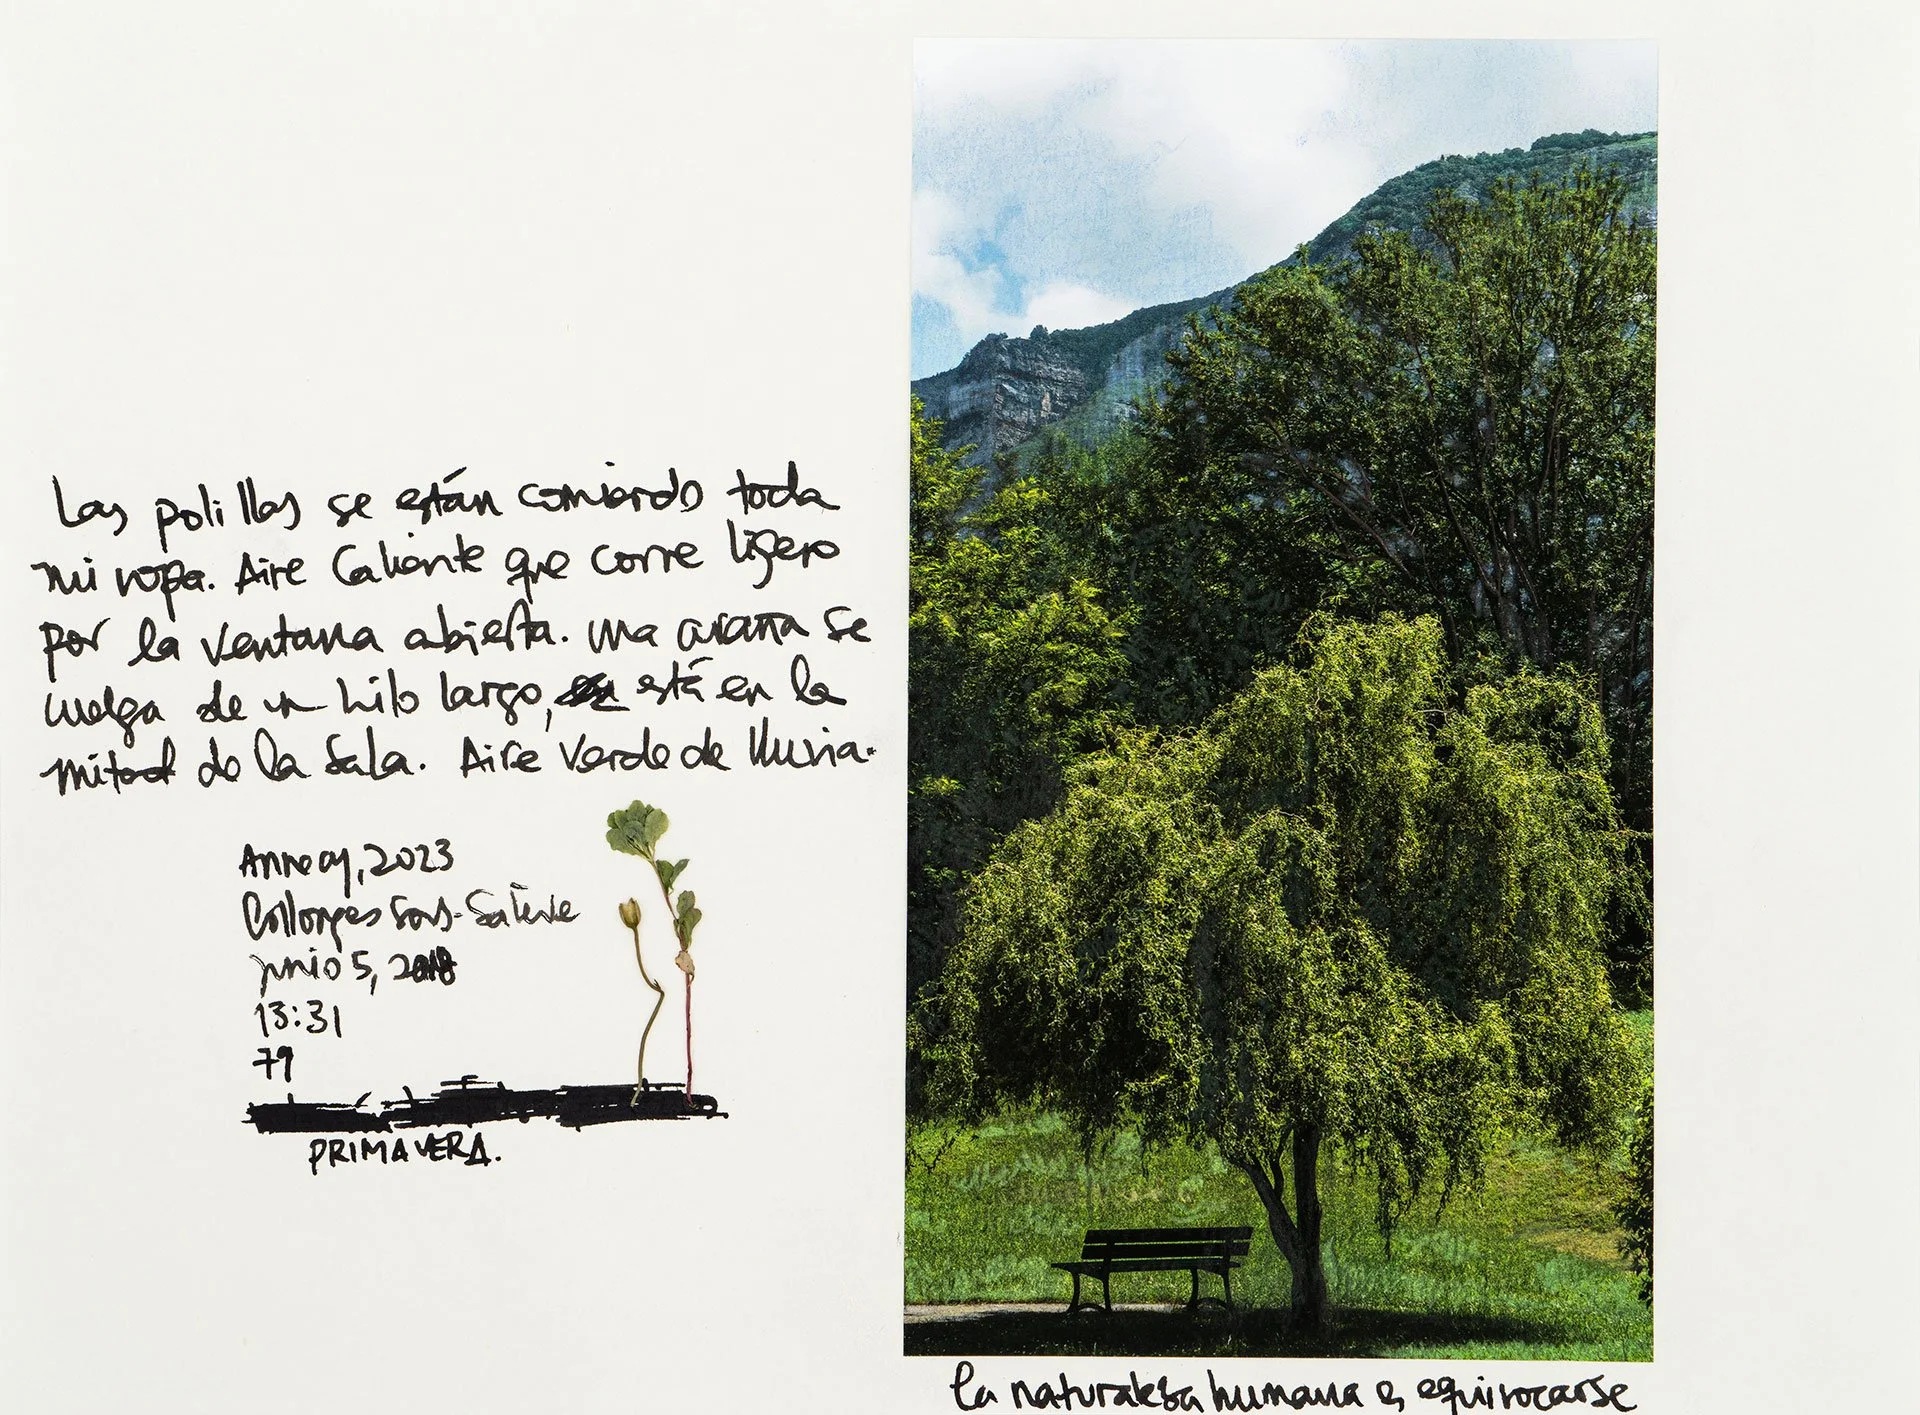 Las polillas se están comiendo toda
mi ropa. Aire Caliente que corre ligero
por la ventana abierta. una araña se
cuelga de un hilo largo, está en la
mitad de la Sala. Aire verde de lluvia.
Annecy, 2023
Collonges Sous-Salève
junio 5, 2018
13:31
79
PRIMAVERA.
la naturaleza humana es equivocarse